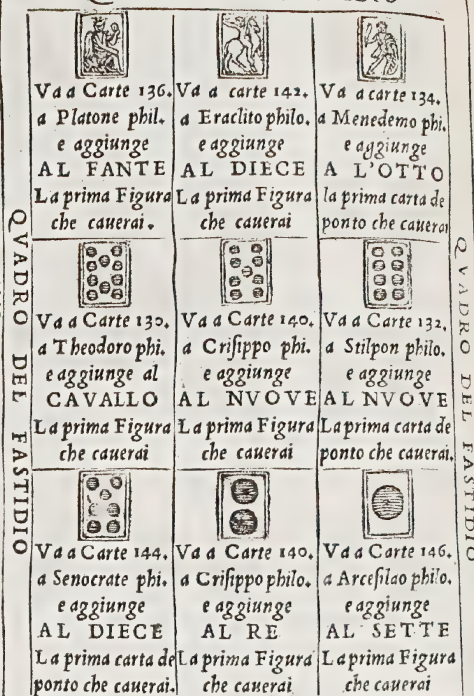 Va a Carte 136.
a Platone phil.
e aggiunge
AL FANTE
La prima Figura
che cauerai.
Va a carte 142.
a Eraclito philo.
e aggiunge
AL DIECE
La prima Figura
che cauerai
Va a carte 134.
a Menedemo phi.
e aggiunge
A L'OTTO
la prima carta de
ponto che cauerai
QVADRO DEL FASTIDIO
Va a Carte 130.
a Theodoro phi.
e aggiunge al
CAVALLO
La prima Figura
che cauerai
Va a Carte 140.
a Criſippo phi.
e aggiunge
AL NVOVE
La prima Figura
che cauerai
Va a Carte 132.
a Stilpon philo.
e aggiunge
AL NVOVE
La prima carta de
ponto che cauerai.
QVADRO DEL FASTIDIO
Va a Carte 144.
a Senocrate phi.
e aggiunge
AL DIECE
La prima carta de
ponto che cauerai.
Va a Carte 140.
a Criſippo philo.
e aggiunge
AL RE
La prima Figura
che cauerai
Va a Carte 146.
a Arceſilao philo.
e aggiunge
AL SETTE
La prima Figura
che cauerai